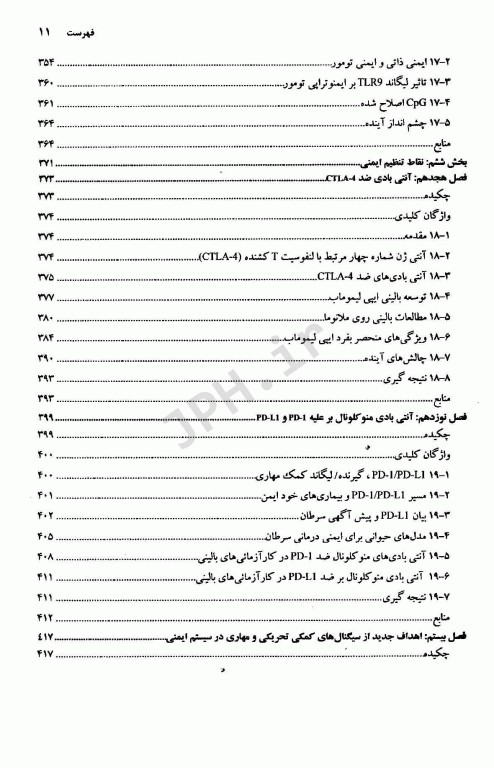 فهرست ۱۱
۱۷-۲ ایمنی ذاتی و ایمنی تومور ۳۵۴
۱۷-۳ تاثیر لیگاند TLR9 بر ایمنوتراپی تومور ۳۶۰
۱۷-۴ CpG اصلاح شده ۳۶۱
۱۷-۵ چشم انداز آینده ۳۶۴
منابع ۳۶۴
بخش ششم: نقاط تنظیم ایمنی ۳۷۱
فصل هجدهم: آنتی بادی ضد CTLA-4 ۳۷۳
چکیده ۳۷۳
واژگان کلیدی ۳۷۴
۱۸-۱ مقدمه ۳۷۴
۱۸-۲ آنتی ژن شماره چهار مرتبط با لنفوسیت T کشنده (CTLA-4) ۳۷۴
۱۸-۳ آنتی بادی‌های ضد CTLA-4 ۳۷۵
۱۸-۴ توسعه بالینی ایپی لیموماب ۳۷۷
۱۸-۵ مطالعات بالینی روی ملانوما ۳۸۰
۱۸-۶ ویژگی‌های منحصر بفرد ایپی لیموماب ۳۸۴
۱۸-۷ چالش‌های آینده ۳۹۰
۱۸-۸ نتیجه گیری ۳۹۳
منابع ۳۹۳
فصل نوزدهم: آنتی بادی منوکلونال بر علیه PD-1 و PD-L1 ۳۹۹
چکیده ۳۹۹
واژگان کلیدی ۴۰۰
۱۹-۱ PD-1/PD-L1 ، گیرنده/ لیگاند کمک مهاری ۴۰۰
۱۹-۲ مسیر PD-1/PD-L1 و بیماری‌های خود ایمن ۴۰۱
۱۹-۳ بیان PD-L1 و پیش آگهی سرطان ۴۰۲
۱۹-۴ مدل‌های حیوانی برای ایمنی درمانی سرطان ۴۰۵
۱۹-۵ آنتی بادی‌های منوکلونال ضد PD-1 در کارآزمائی‌های بالینی ۴۰۸
۱۹-۶ آنتی بادی منوکلونال بر ضد PD-L1 در کارآزمائی‌های بالینی ۴۱۱
۱۹-۷ نتیجه گیری ۴۱۱
منابع ۴۱۲
فصل بیستم: اهداف جدید از سیگنال‌های کمکی تحریکی و مهاری در سیستم ایمنی ۴۱۷
چکیده ۴۱۷
JPH.ir